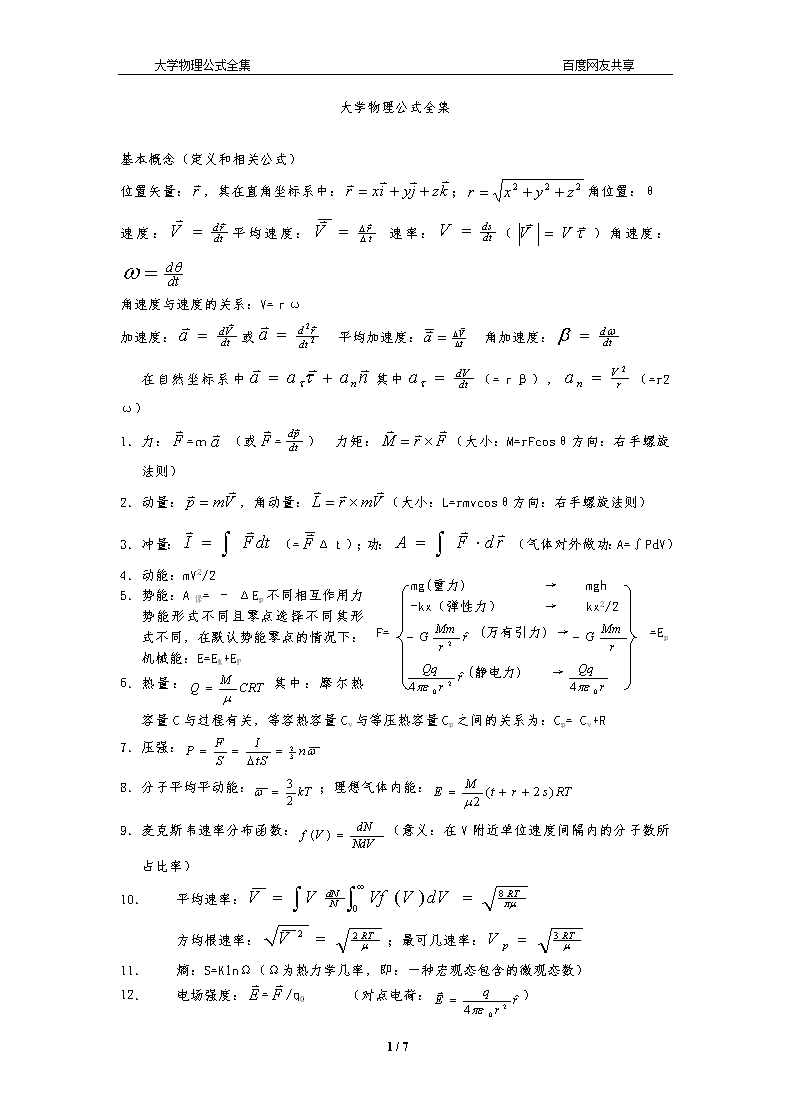 大学物理公式全集 百度网友共享
大学物理公式全集
基本概念（定义和相关公式）
位置矢量：r⃗，其在直角坐标系中：r⃗ = xi⃗ + yj⃗ + zk⃗；r = √(x² + y² + z²) 角位置：θ
速度：V⃗ = dr⃗/dt 平均速度：V̅⃗ = Δr⃗/Δt 速率：V = ds/dt（|V⃗| = Vτ⃗）角速度：
ω = dθ/dt
角速度与速度的关系：V= r ω
加速度：a⃗ = dV⃗/dt 或 a⃗ = d²r⃗/dt² 平均加速度：a̅⃗ = ΔV⃗/Δt 角加速度：β = dω/dt
在自然坐标系中 a⃗ = a_τ τ⃗ + a_n n⃗ 其中 a_τ = dV/dt（= r β），a_n = V²/r（=r2
ω）
1. 力：F⃗=m a⃗ （或 F⃗ = dp⃗/dt） 力矩：M⃗ = r⃗ × F⃗（大小：M=rFcosθ方向：右手螺旋
法则）
2. 动量：p⃗ = mV⃗，角动量：L⃗ = r⃗ × mV⃗（大小：L=rmvcosθ方向：右手螺旋法则）
3. 冲量：I⃗ = ∫ F⃗dt （= F̅⃗ Δ t）；功：A = ∫ F⃗ · dr⃗ （气体对外做功：A=∫PdV）
4. 动能：mV²/2
5. 势能：A保= - ΔEp不同相互作用力
势能形式不同且零点选择不同其形
式不同，在默认势能零点的情况下：
机械能：E=EK+EP
F=
mg(重力) → mgh
-kx（弹性力） → kx²/2
- G Mm/r² r̂ （万有引力）→ - G Mm/r
Qq/(4πε₀r²) r̂ (静电力) → Qq/(4πε₀r)
=Ep
6. 热量：Q = M/μ CRT 其中：摩尔热
容量 C 与过程有关，等容热容量 Cv 与等压热容量 Cp 之间的关系为：Cp= Cv+R
7. 压强：P = F/S = I/(ΔtS) = 2/3 nω̅
8. 分子平均平动能：ω̅ = 3/2 kT；理想气体内能：E = M/(μ2) (t + r + 2s)RT
9. 麦克斯韦速率分布函数：f(V) = dN/(NdV)（意义：在 V 附近单位速度间隔内的分子数所
占比率）
10. 平均速率：V̅ = ∫V dN/N ∫₀^∞ Vf (V)dV = √(8RT/πμ)
方均根速率：√(V̅²) = √(2RT/μ)；最可几速率：V_p = √(3RT/μ)
11. 熵：S=KlnΩ（Ω为热力学几率，即：一种宏观态包含的微观态数）
12. 电场强度：E⃗ = F⃗ /q₀ （对点电荷：E⃗ = q/(4πε₀r²) r̂）
1 / 7